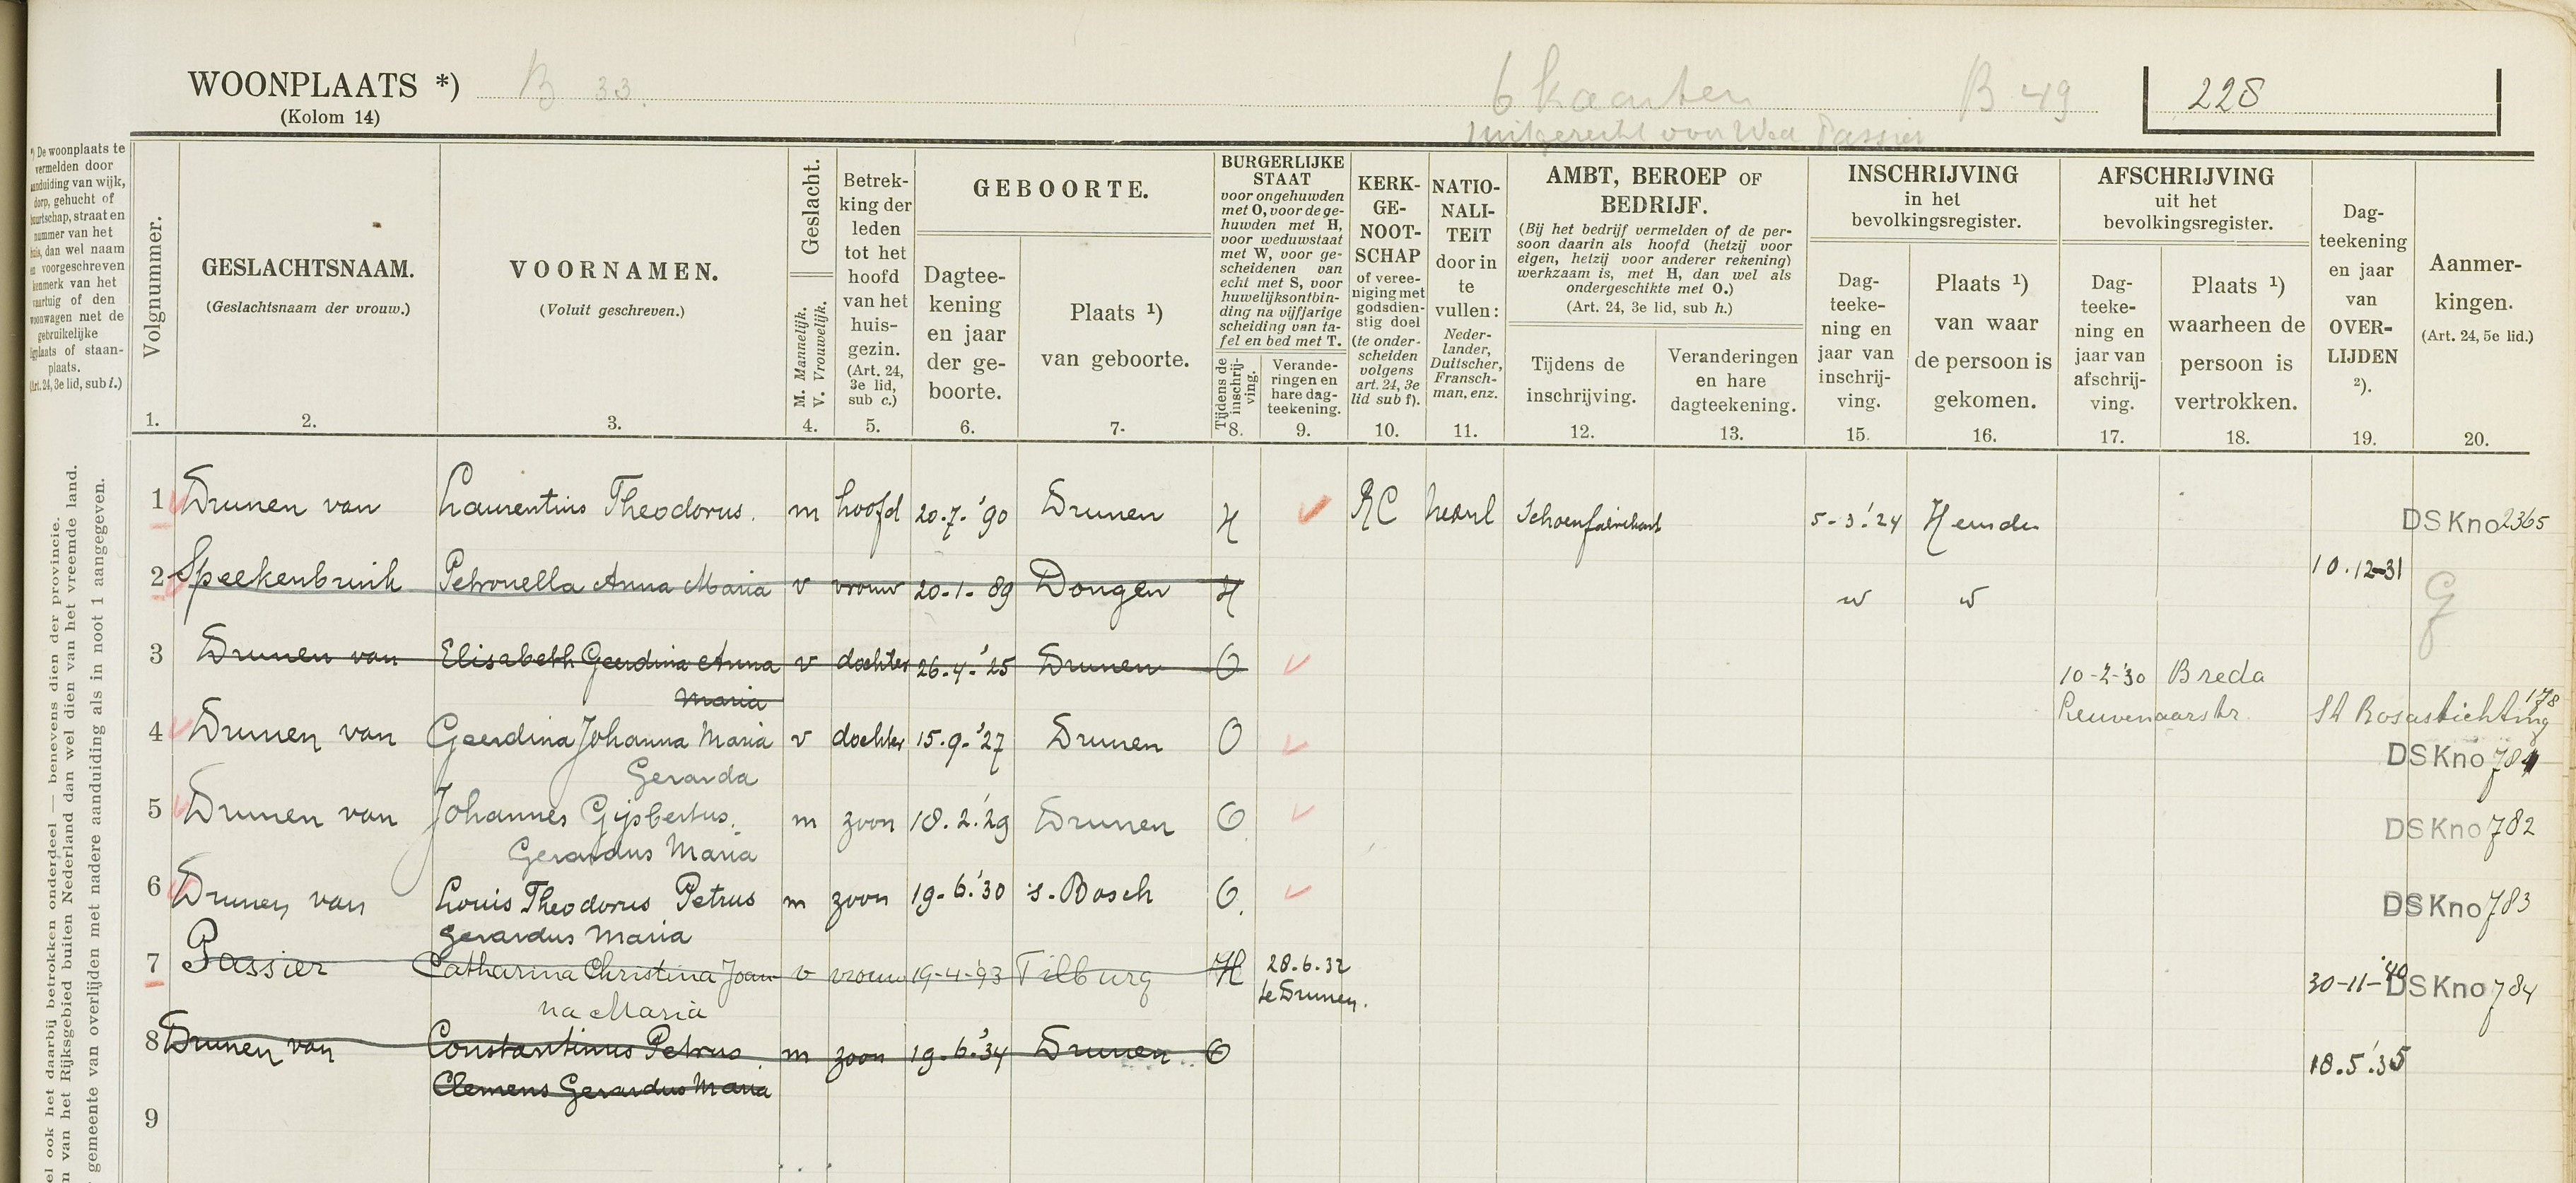 WOONPLAATS *) B 33. 6 kaarten B 49 228
(Kolom 14) uitgereikt voor Wed Passier
*) De woonplaats te
vermelden door
aanduiding van wijk,
dorp, gehucht of
buurtschap, straat en
nummer van het
huis, dan wel naam
en voorgeschreven
kenmerk van het
vaartuig of den
woonwagen met de
gebruikelijke
ligplaats of staan-
plaats.
(Art. 24, 3e lid, sub l.)
el ook het daarbij betrokken onderdeel — benevens dien der provincie.
n van het Rijksgebied buiten Nederland dan wel dien van het vreemde land.
gemeente van overlijden met nadere aanduiding als in noot 1 aangegeven.
Volgnummer.
1.
GESLACHTSNAAM.
(Geslachtsnaam der vrouw.)
2.
VOORNAMEN.
(Voluit geschreven.)
3.
Geslacht.
M. Mannelijk.
V. Vrouwelijk.
4.
Betrek-
king der
leden
tot het
hoofd
van het
huis-
gezin.
(Art. 24,
3e lid,
sub c.)
5.
GEBOORTE.
Dagtee-
kening
en jaar
der ge-
boorte.
6.
Plaats 1)
van geboorte.
7.
BURGERLIJKE
STAAT
voor ongehuwden
met O, voor de ge-
huwden met H,
voor weduwstaat
met W, voor ge-
scheidenen van
echt met S, voor
huwelijksontbin-
ding na vijfjarige
scheiding van ta-
fel en bed met T.
Tijdens de
inschrij-
ving.
8.
Verande-
ringen en
hare dag-
teekening.
9.
KERK-
GE-
NOOT-
SCHAP
of veree-
niging met
godsdien-
stig doel
(te onder-
scheiden
volgens
art. 24, 3e
lid sub f).
10.
NATIO-
NALI-
TEIT
door in
te
vullen:
Neder-
lander,
Duitscher,
Fransch-
man, enz.
11.
AMBT, BEROEP OF
BEDRIJF.
(Bij het bedrijf vermelden of de per-
soon daarin als hoofd (hetzij voor
eigen, hetzij voor anderer rekening)
werkzaam is, met H, dan wel als
ondergeschikte met O.)
(Art. 24, 3e lid, sub h.)
Tijdens de
inschrijving.
12.
Veranderingen
en hare
dagteekening.
13.
INSCHRIJVING
in het
bevolkingsregister.
Dag-
teeke-
ning en
jaar van
inschrij-
ving.
15.
Plaats 1)
van waar
de persoon is
gekomen.
16.
AFSCHRIJVING
uit het
bevolkingsregister.
Dag-
teeke-
ning en
jaar van
afschrij-
ving.
17.
Plaats 1)
waarheen de
persoon is
vertrokken.
18.
Dag-
teekening
en jaar
van
OVER-
LIJDEN
2).
19.
Aanmer-
kingen.
(Art. 24, 5e lid.)
20.
1 Drunen van Laurentius Theodorus. m hoofd 20-7-'90 Drunen H RC Nederl Schoenfabrikant 5-3-'24 Heusden DSKno2365
2 Speekenbrink Petronella Anna Maria v vrouw 20-1-89 Dongen H 10.12-31 G
3 Drunen van Elisabeth Geerdina Anna v dochter 26-4-'25 Drunen O 10-2-'30 Breda
Maria Leuvenaarstr. 178 St Rosastichting
4 Drunen van Geerdina Johanna Maria v dochter 15-9-'27 Drunen O DSKno 781
Gerarda
5 Drunen van Johannes Gijsbertus. m zoon 18.2.'29 Drunen O DSKno 782
Gerardus Maria
6 Drunen van Louis Theodorus Petrus m zoon 19-6-'30 's-Bosch O. DSKno783
Gerardus Maria
7 Passier Catharina Christina Joan- v vrouw 19-4-'93 Tilburg H 28.6.32 30-11-'40 DSKno 784
na Maria te Drunen.
8 Drunen van Constantinus Petrus m zoon 19-6-'34 Drunen O 18.5.'35
Clemens Gerardus Maria
9